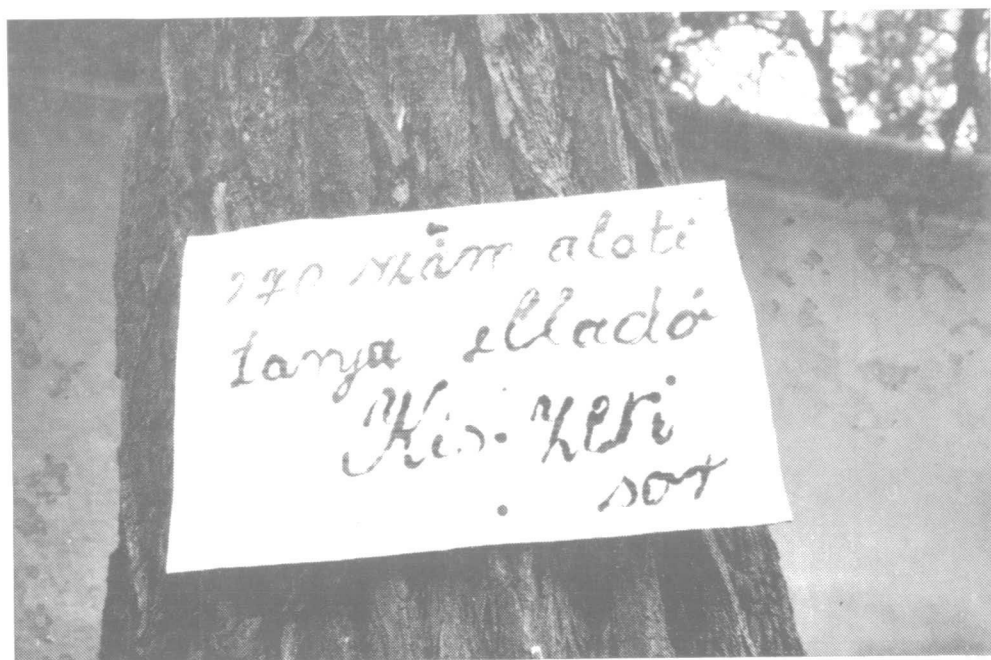 270 szám alati
tanya elladó
Kis.
sor